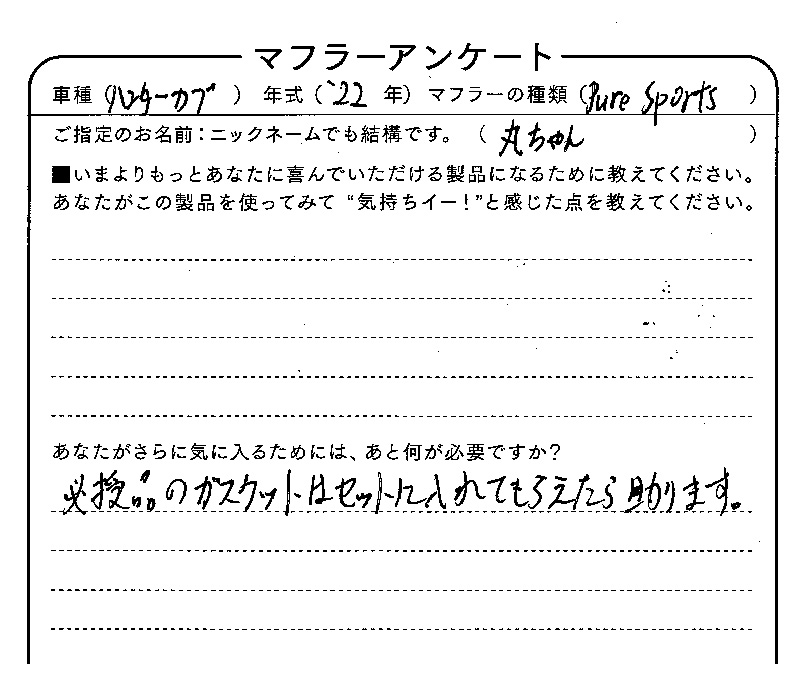 マフラーアンケート
車種（ハンターカブ） 年式（'22 年） マフラーの種類（Pure Sports）
ご指定のお名前：ニックネームでも結構です。（丸ちゃん）
■いまよりもっとあなたに喜んでいただける製品になるために教えてください。
あなたがこの製品を使ってみて“気持ちイー！”と感じた点を教えてください。
あなたがさらに気に入るためには、あと何が必要ですか？
必授品のガスケットはセットに入れてもらえたら助ります。